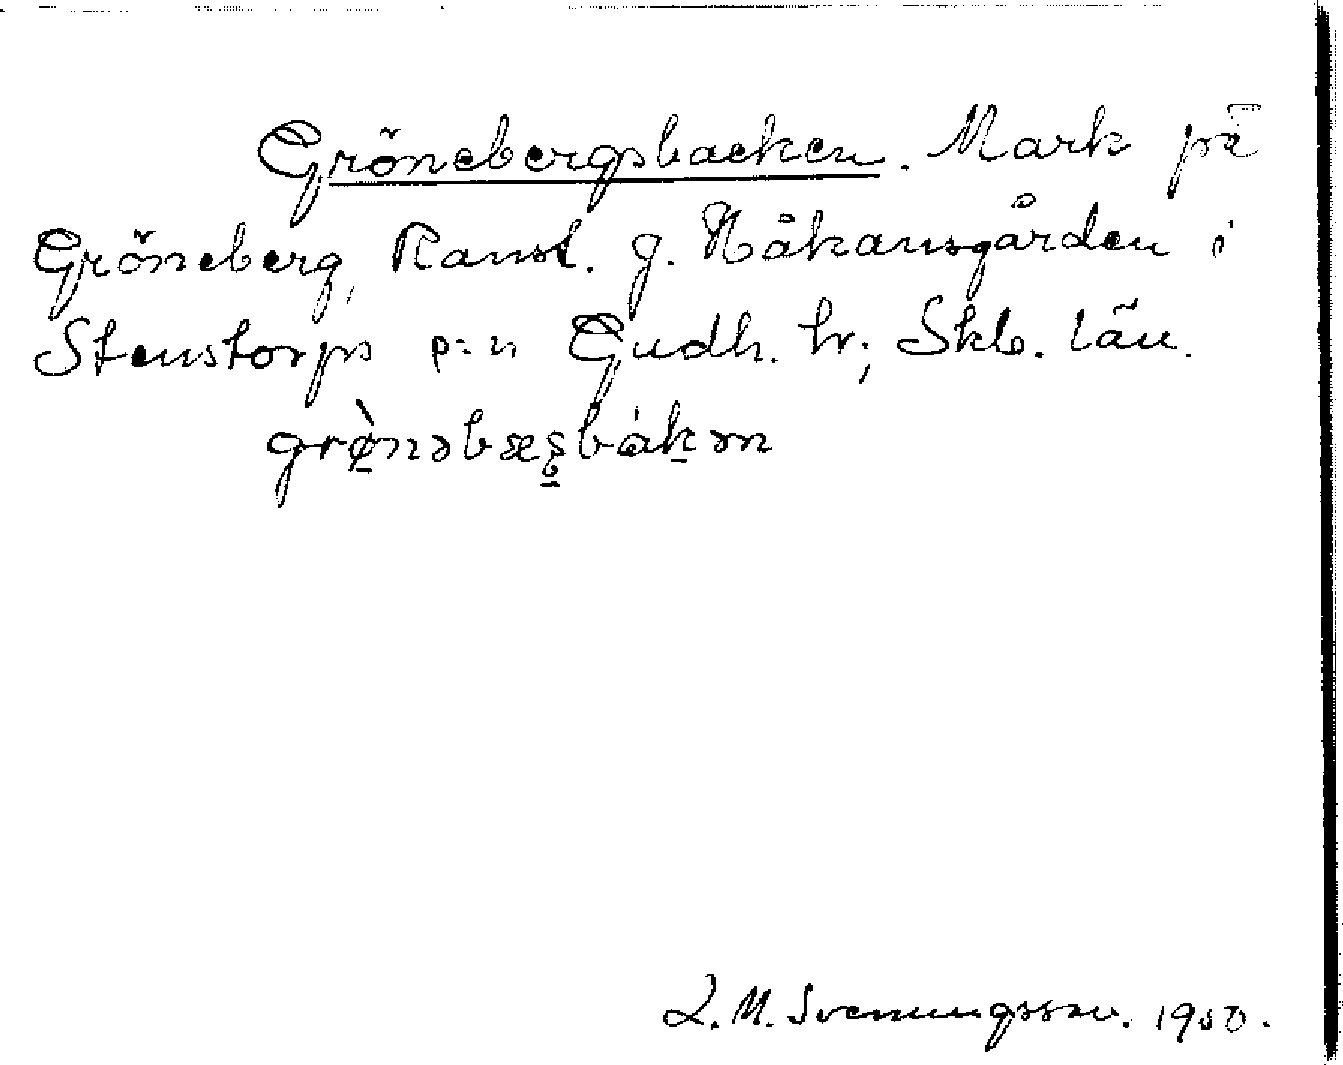 Grönebergsbacken. Mark på
Gröneberg, Ranst. g. Håkansgården i
Stenstorps s:n Gudh. hr; Skb. län.
grø̀nəbæʂbákən
L. M. Svenungsson. 1950.